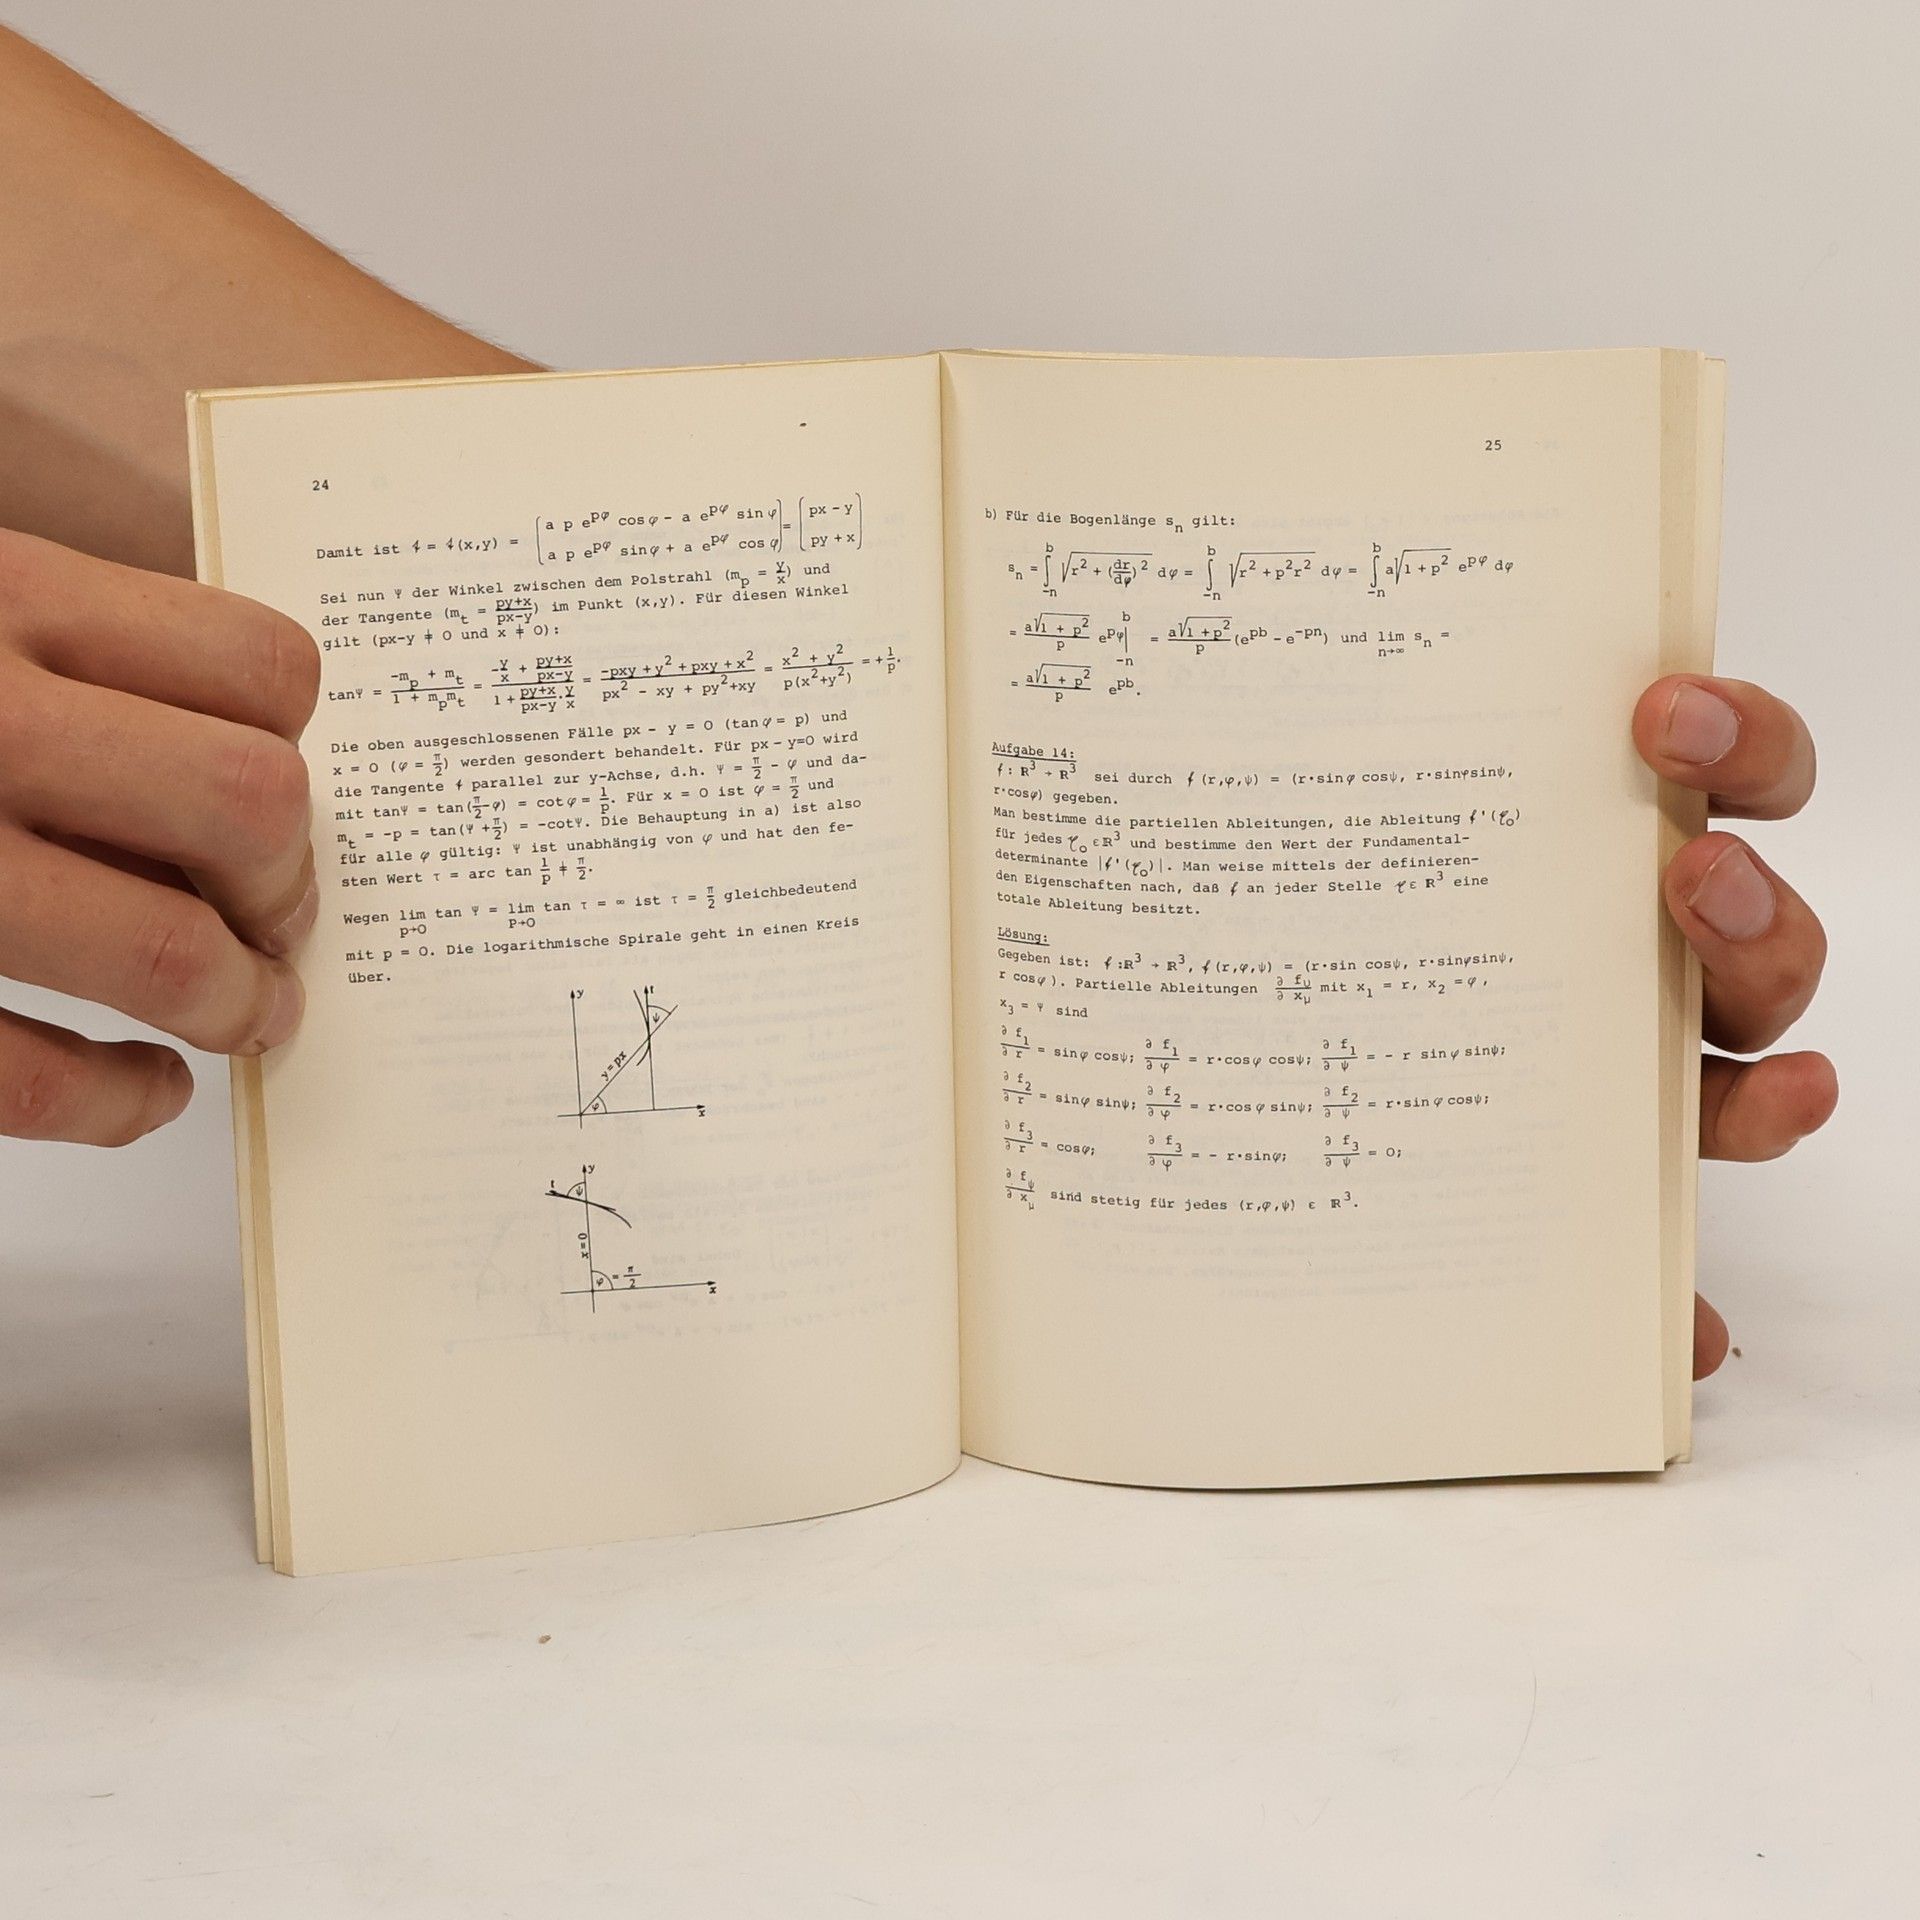 24
Damit ist t = t(x,y) = (a p e^pφ cosφ - a e^pφ sinφ / a p e^pφ sinφ + a e^pφ cosφ) = (px - y / py + x)
Sei nun Ψ der Winkel zwischen dem Polstrahl (m_p = y/x) und
der Tangente (m_t = py+x/px-y) im Punkt (x,y). Für diesen Winkel
gilt (px-y ≠ 0 und x ≠ 0):
tanΨ = -m_p + m_t / 1 + m_p m_t = -y/x + py+x/px-y / 1 + py+x/px-y · y/x = -pxy + y² + pxy + x² / px² - xy + py² + xy = x² + y² / p(x²+y²) = + 1/p.
Die oben ausgeschlossenen Fälle px - y = 0 (tanφ = p) und
x = 0 (φ = π/2) werden gesondert behandelt. Für px - y=0 wird
die Tangente t parallel zur y-Achse, d.h. Ψ = π/2 - φ und da-
mit tanΨ = tan(π/2-φ) = cotφ = 1/p. Für x = 0 ist φ = π/2 und
m_t = -p = tan(Ψ + π/2) = -cotΨ. Die Behauptung in a) ist also
für alle φ gültig: Ψ ist unabhängig von φ und hat den fe-
sten Wert τ = arc tan 1/p ≠ π/2.
Wegen lim tan Ψ = lim tan τ = ∞ ist τ = π/2 gleichbedeutend
p→0 p→0
mit p = 0. Die logarithmische Spirale geht in einen Kreis
über.
y t
ψ
y=px
φ
x
y
t ψ
x=0
φ = π/2
x
25
b) Für die Bogenlänge s_n gilt:
s_n = ∫_-n^b √(r² + (dr/dφ)²) dφ = ∫_-n^b √(r² + p²r²) dφ = ∫_-n^b a√(1 + p²) e^pφ dφ
= a√(1 + p²)/p e^pφ |_-n^b = a√(1 + p²)/p (e^pb - e^-pn) und lim_n→∞ s_n =
= a√(1 + p²)/p e^pb.
Aufgabe 14:
f: ℝ³ → ℝ³ sei durch f(r,φ,ψ) = (r·sinφ cosψ, r·sinφsinψ,
r·cosφ) gegeben.
Man bestimme die partiellen Ableitungen, die Ableitung f'(𝔵_0)
für jedes 𝔵_0 ε ℝ³ und bestimme den Wert der Fundamental-
determinante |f'(𝔵_0)|. Man weise mittels der definieren-
den Eigenschaften nach, daß f an jeder Stelle 𝔵 ε ℝ³ eine
totale Ableitung besitzt.
Lösung:
Gegeben ist: f :ℝ³ → ℝ³, f(r,φ,ψ) = (r·sin cosψ, r·sinφsinψ,
r cosφ). Partielle Ableitungen ∂ f_υ/∂ x_μ mit x_1 = r, x_2 = φ,
x_3 = Ψ sind
∂ f_1/∂ r = sinφ cosψ; ∂ f_1/∂ φ = r·cosφ cosψ; ∂ f_1/∂ ψ = - r sinφ sinψ;
∂ f_2/∂ r = sinφ sinψ; ∂ f_2/∂ φ = r·cosφ sinψ; ∂ f_2/∂ ψ = r·sinφ cosψ;
∂ f_3/∂ r = cosφ; ∂ f_3/∂ φ = - r·sinφ; ∂ f_3/∂ ψ = 0;
∂ f_ψ/∂ x_μ sind stetig für jedes (r,φ,ψ) ε ℝ³.